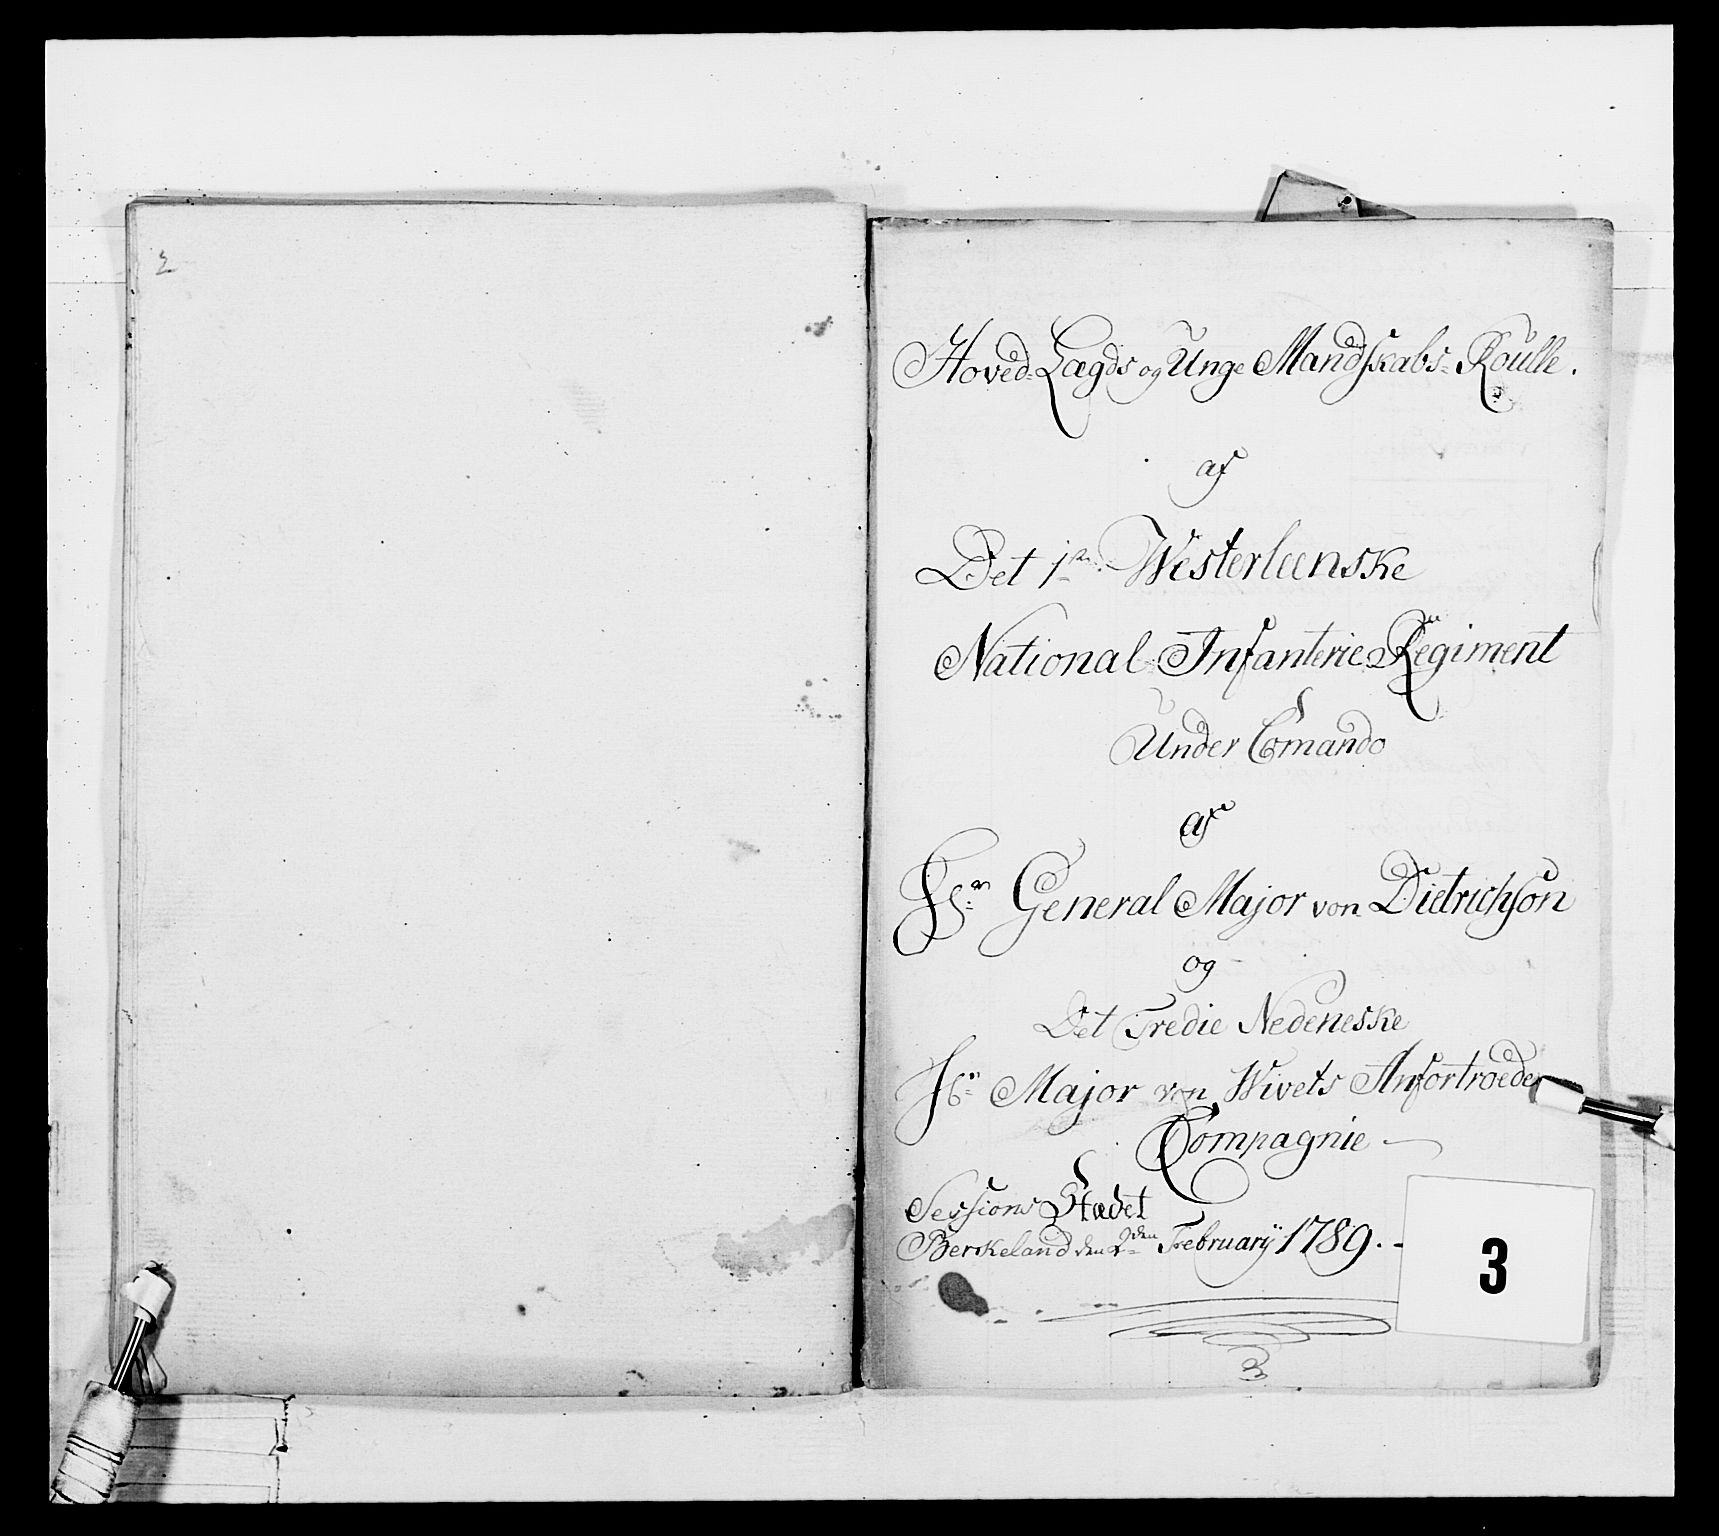 2
Hoved- Lægds og Unge Mandskabs- Roulle.
af
Det 1ste Westerleenske
National Infanterie Regiment
Under Comando
af
Hr General Major von Dietrichson
og
Det Tredie Nedeneske
Hr Major von Wivets Anfortroede
Compagnie
Sessions Stædet
Berkeland den 2den February 1789.
3
3